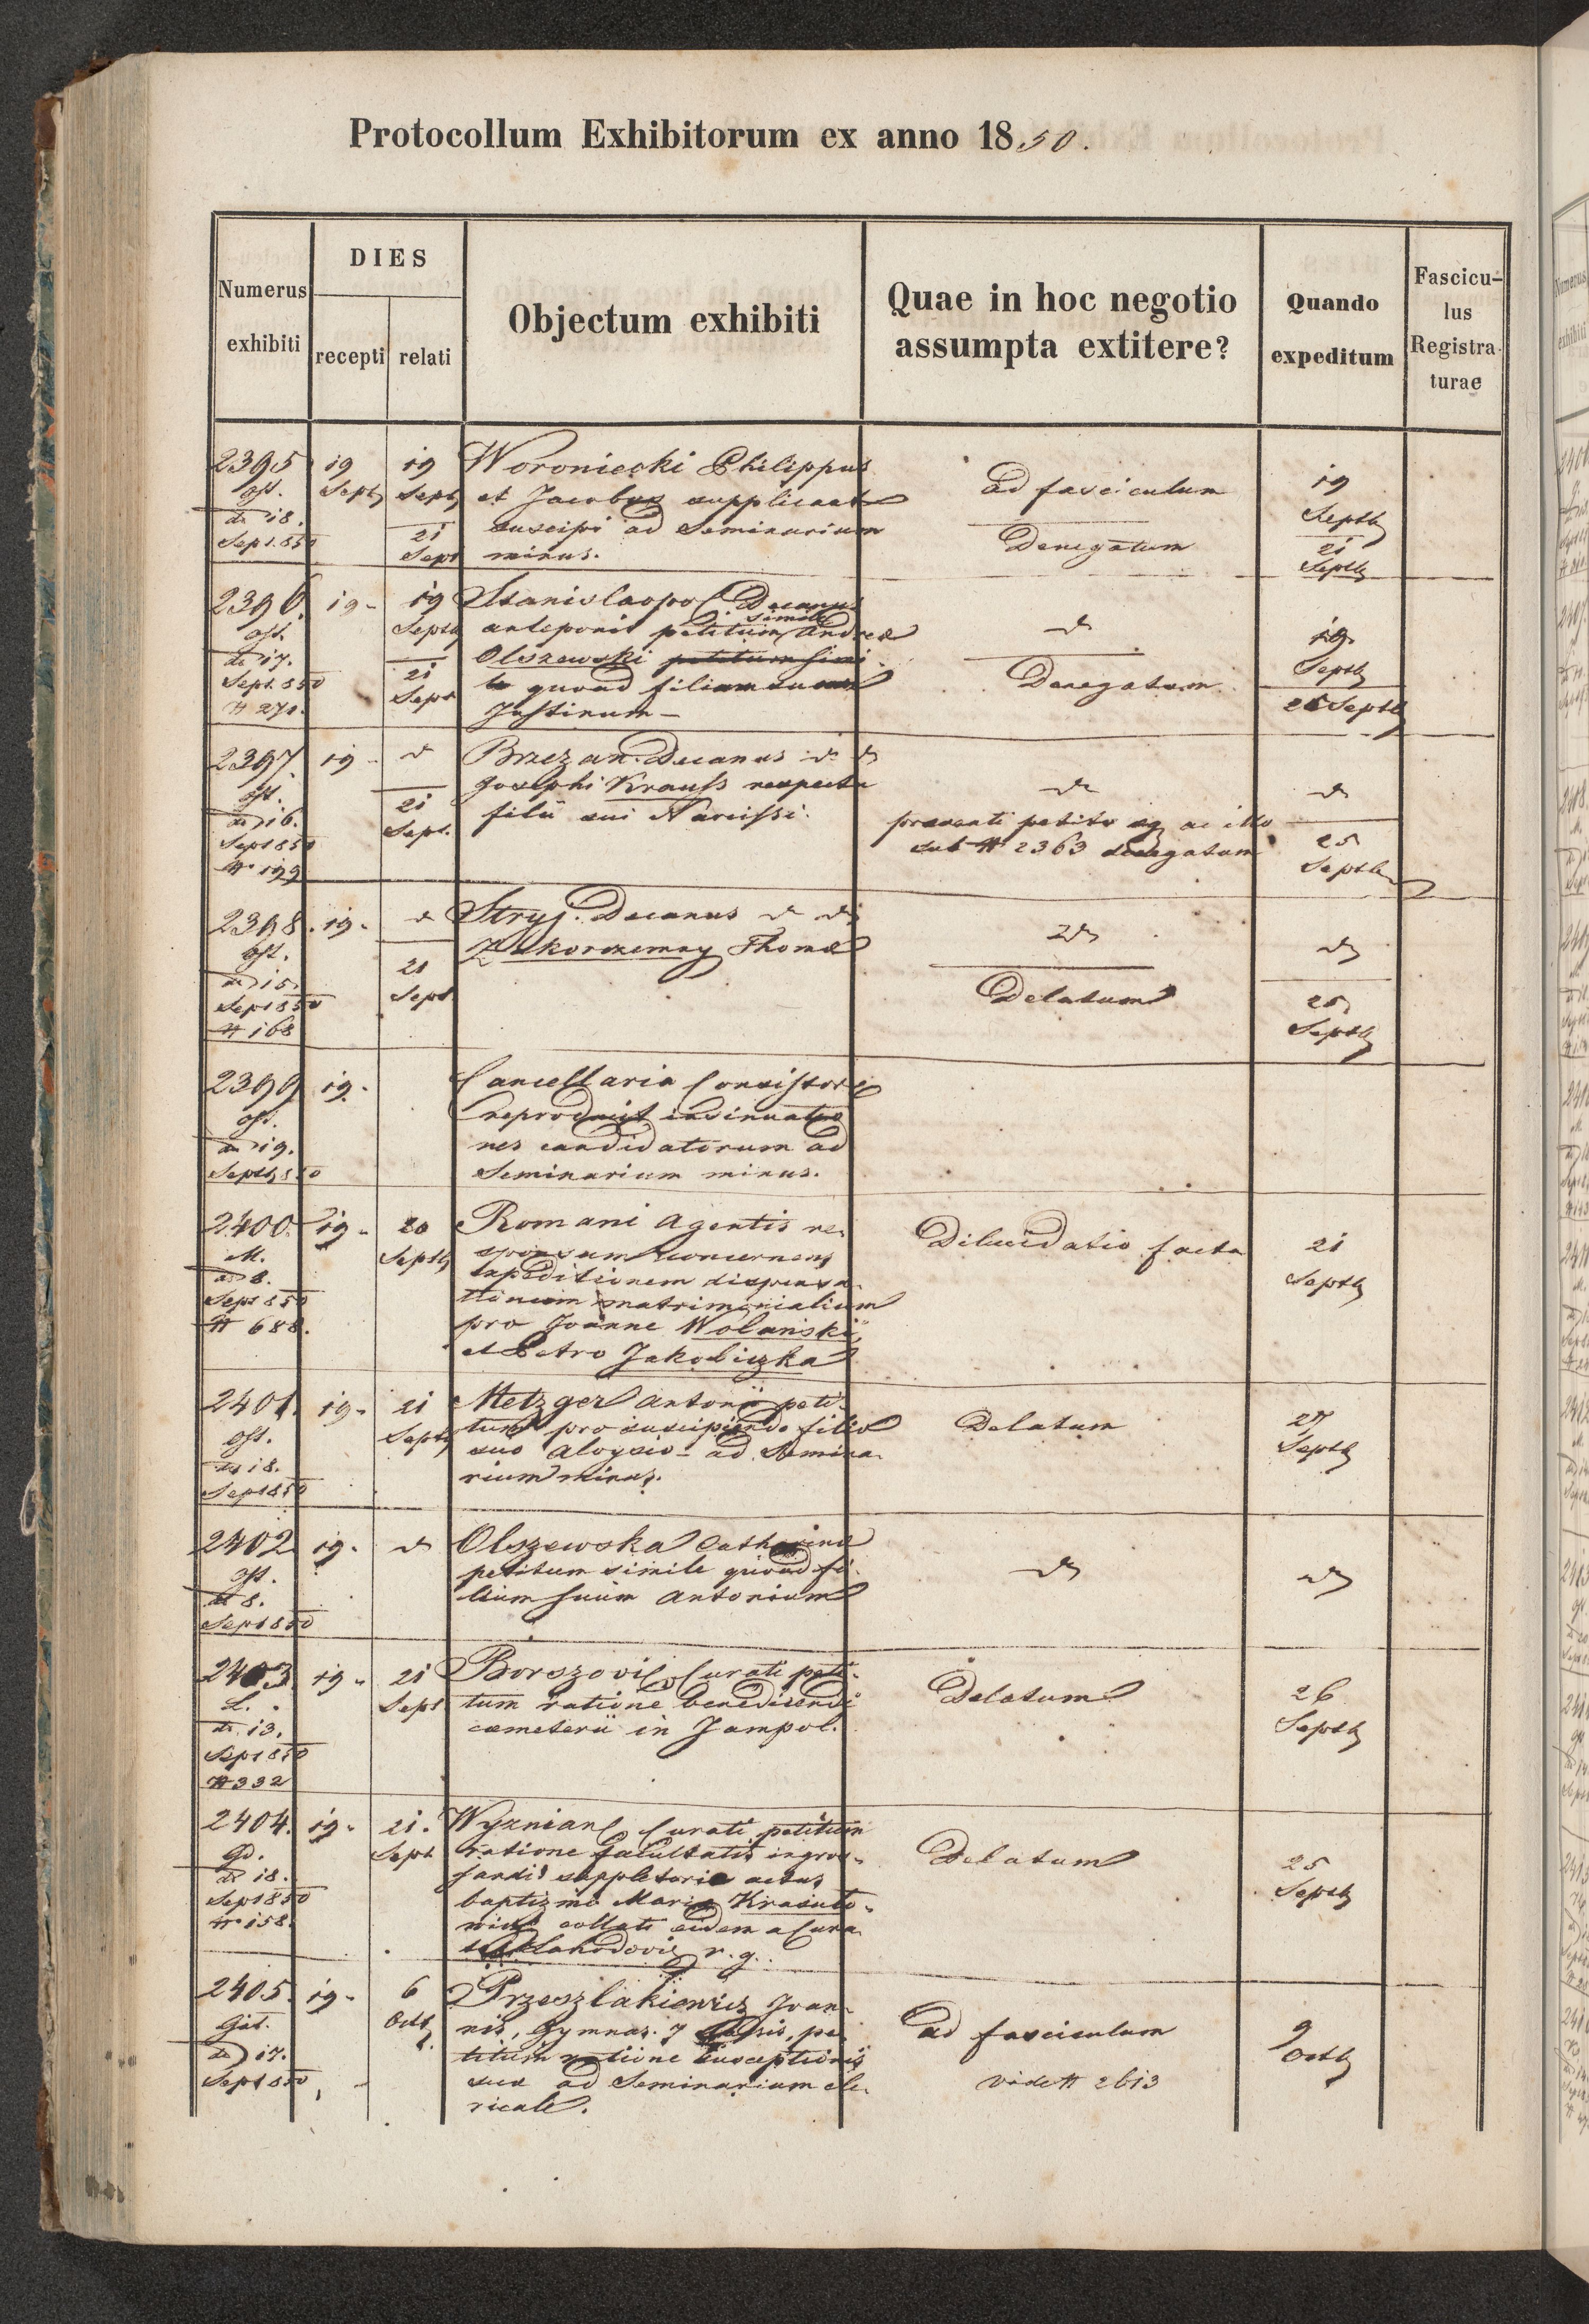 Protocollum Exhibitorum ex anno 1850.
Numerus exhibiti
DIES
recepti
relati
Objectum exhibiti
Quae in hoc negotio
assumpta extitere?
Quando
expeditum
Fascicu-
lus
Registra
turae
2395
dt 18.
Sept. 850
19
Septb
19
Septb
21
Sept
Woroniecki Philippus
et Jacobus supplicant
suscipi ad Seminarium
minus.
ad fasciculum
Denegatum
19
Septb
21
Septb
2396.
dt 17.
Sept. 850
N 271.
19
19
Septb
21
Sept
Stanislaopol. Decanus
simile
anteponit petitum Andreæ
Olszewski petitum simi
le quoad filium suum
Justinum
Denegatum
19
Septb
25 Septb
2397
dt 16.
Sept 850
N 199
19
21
Sept.
Brzezan. Decanus
Josephi Krauss respectu
filii sui Narcissi.
præsenti petito æq ac illo
sub N 2363 denegatum
25
Septb
2398.
dt 15.
Sept 850
N 168
19.
21
Sept
Stryj. Decanus
Zakorczemny Thomæ
Delatum
25
Septb
2399
dt 19.
Septb 850
19.
Cancellaria Consistor
reproducit insinuatio
nes candidatorum ad
Seminarium minus.
2400.
M.
dt 8.
Sept 850
N 688.
19
20
Septb
Romani Agentis re
sponsum concernens
expeditionem dispensa
tionum matrimonialium
pro Joanne Wolański
et Petro Jakobiczka
Dilucidatio facta
21
Septb
2401.
dt 18.
Sept 850
19
21
Septb
Metzger Antonii peti
tum pro suscipiendo filio
suo Aloysio ad Semina
rium minus.
Delatum
27
Septb
2402
dt 8.
Sept 850
19.
Olszewska Catharina
petitum simile quoad fi
lium suum Antonium
2403
L.
dt 13.
Sept 850
N 332
19
21
Sept
Borszovic. Curati peti-
tum ratione benedicendi
cœmeterii in Jampol.
Delatum
26
Septb
2404.
dt 18.
Sept 850
N 158.
19.
21.
Sept
Wyznian. Curati petitum
ratione facultatis ingros-
sandi suppletorie actus
baptismi Mariæ
collati eidem a Cura
to r. g.
Delatum
25
Septb
2405.
dt 17.
Sept 850
19
6
Octb
Przeszlakiewicz Joan-
nis, Gymnas. 7 classis, pe
titum ratione susceptionis
suæ ad Seminarium cle
ricale.
ad fasciculum
vide N 2613
9
Octb